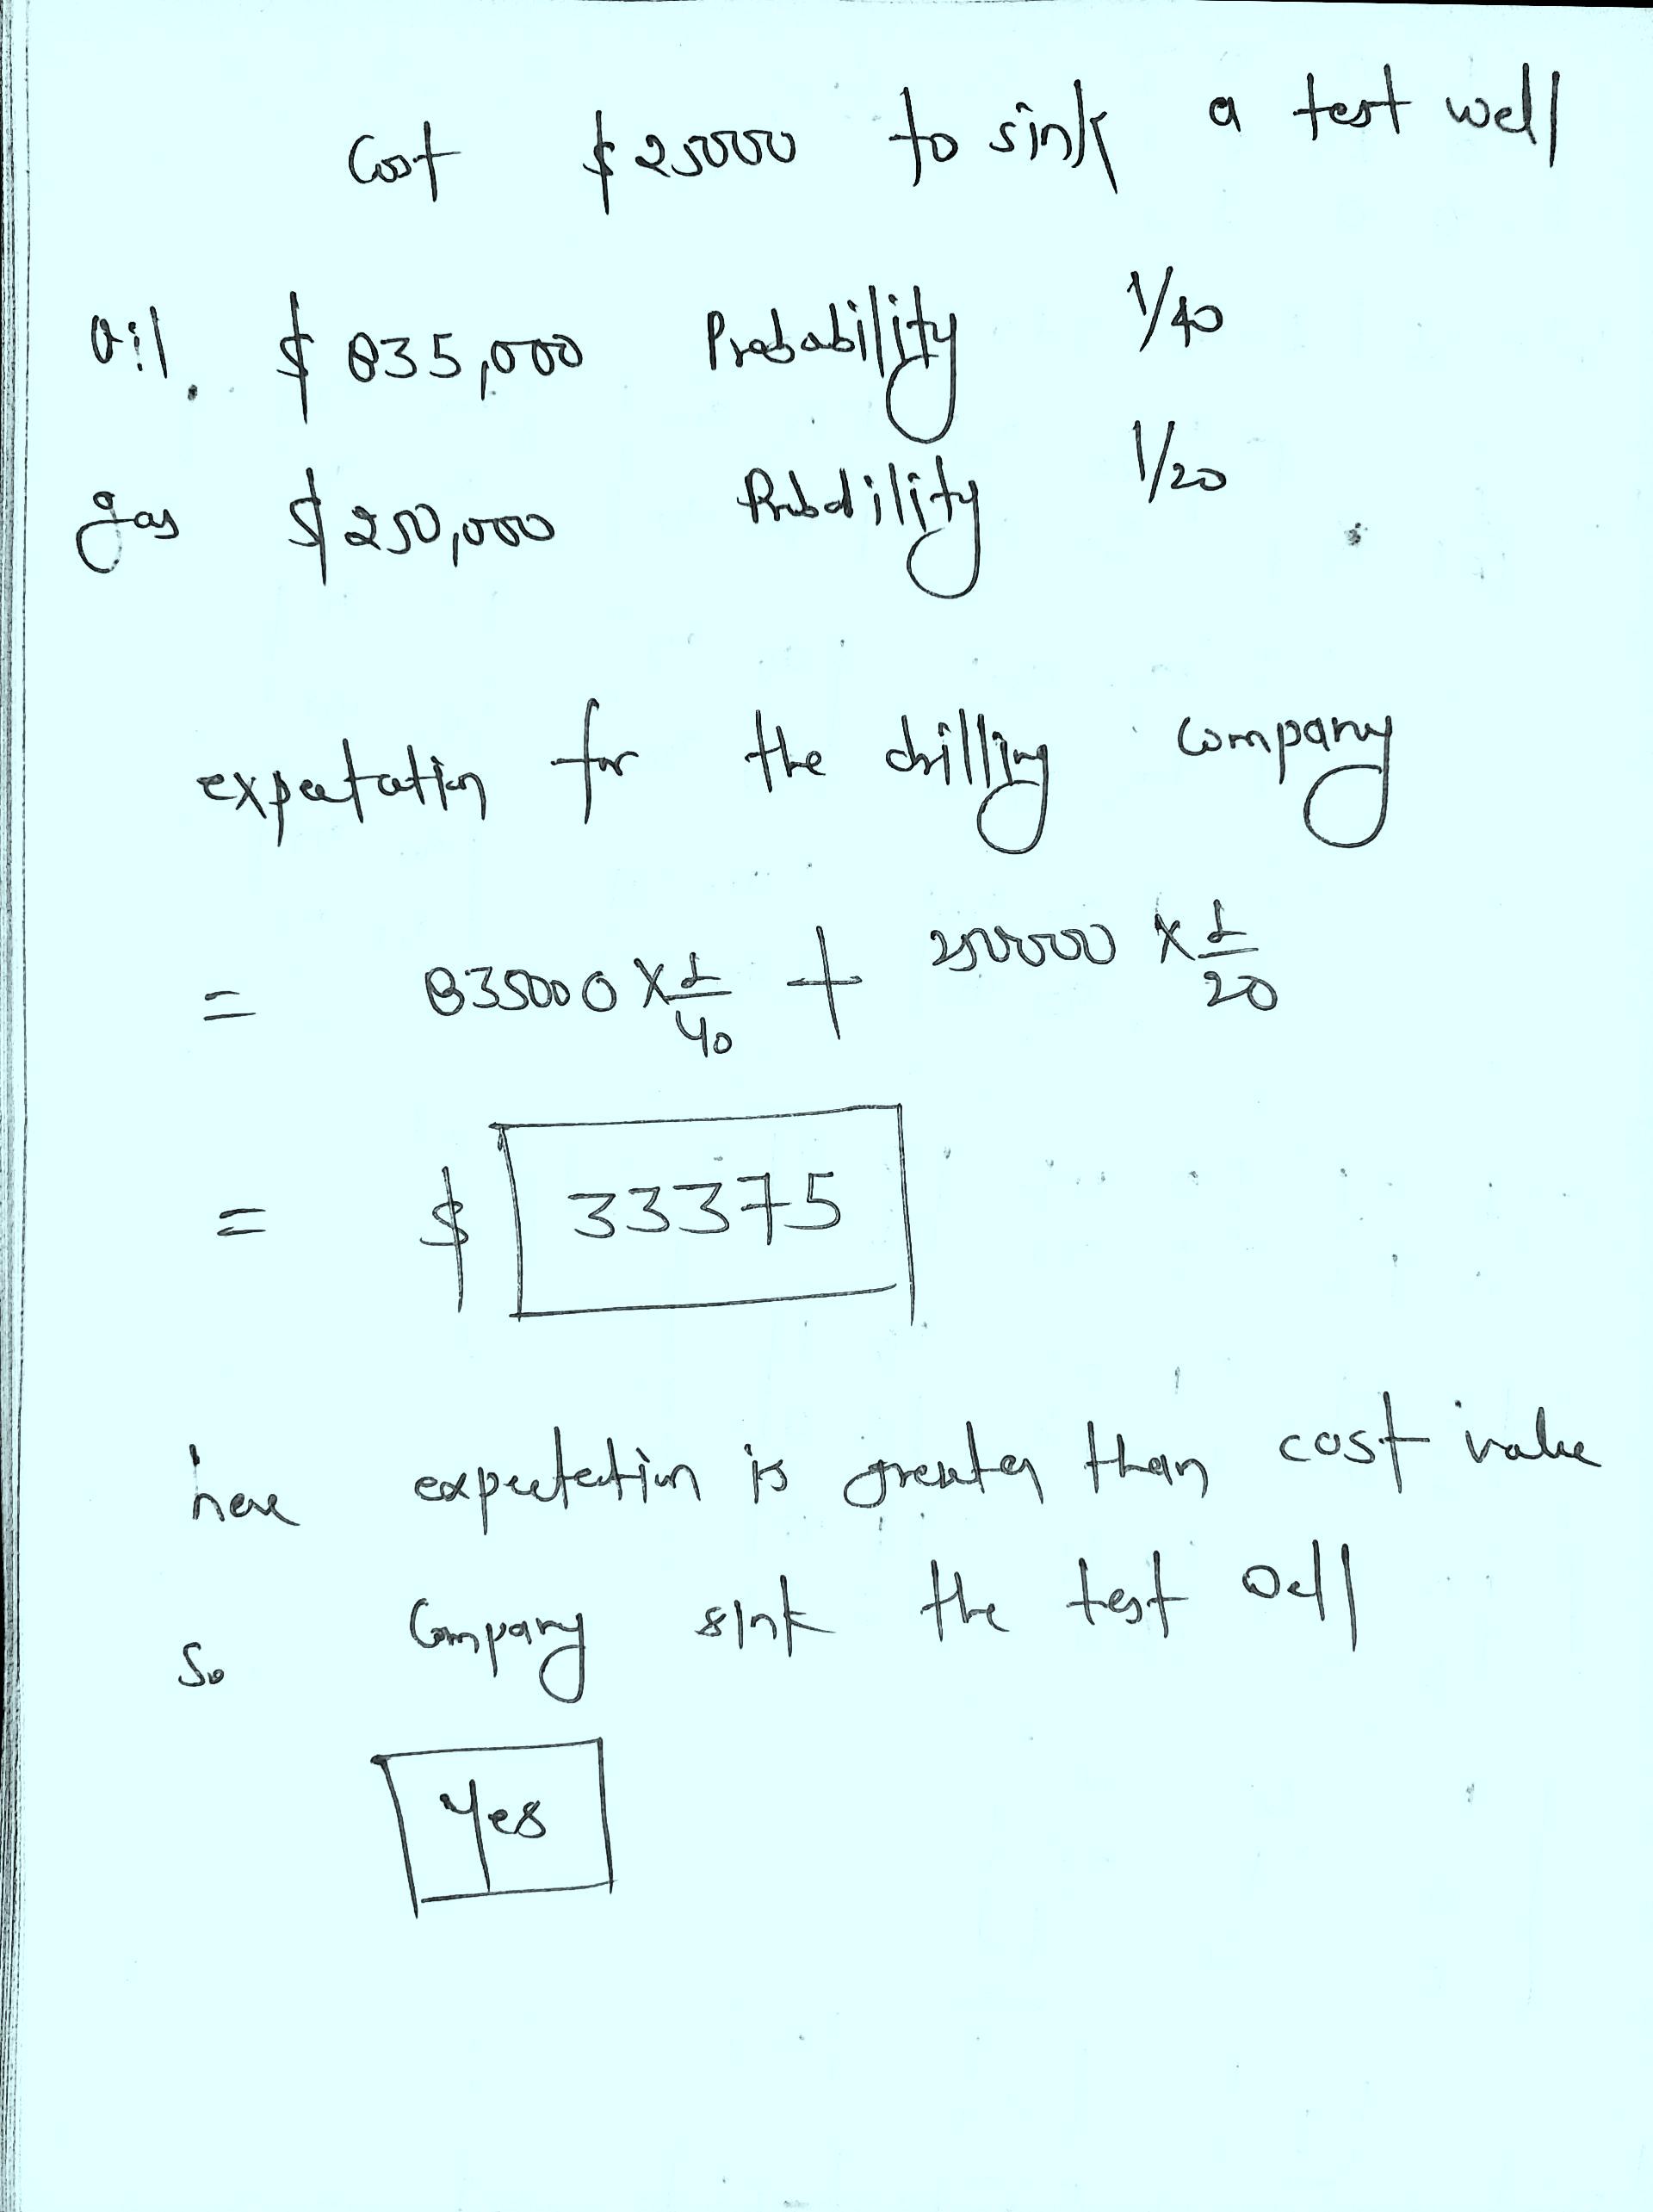 Cost $25000 to sink a test well
Oil. $835,000 Probability 1/40
gas $250,000 Probability 1/20
expectation for the drilling company
= 835000 X 1/40 + 250000 X 1/20
= $ 33375
here expectation is greater than cost value
So Company sink the test well
Yes